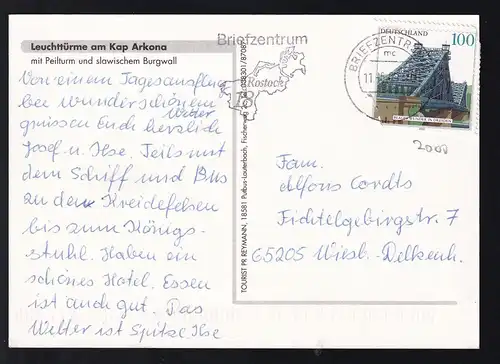 Leuchttürme am Kap Arkona
mit Peilturm und slawischem Burgwall
Von einem Tagesausflug
bei wunderschönem
Wetter
grüssen Euch herzlich
Josef u. Ilse. Teils mit
dem Schiff und Bus
zu den Kreidefelsen
bis zum Königs-
stuhl. Haben ein
schönes Hotel. Essen
ist auch gut. Das
Wetter ist Spitze Ilse
TOURIST PR REYMANN, 18581 Putbus-Lauterbach, Fischerweg
Briefzentrum
Rostock
BRIEFZENTR
mc
11.
DEUTSCHLAND
100
2000
Fam.
Alfons Cordts
Fichtelgebirgstr. 7
65205 Wiesb.-Delkenh.